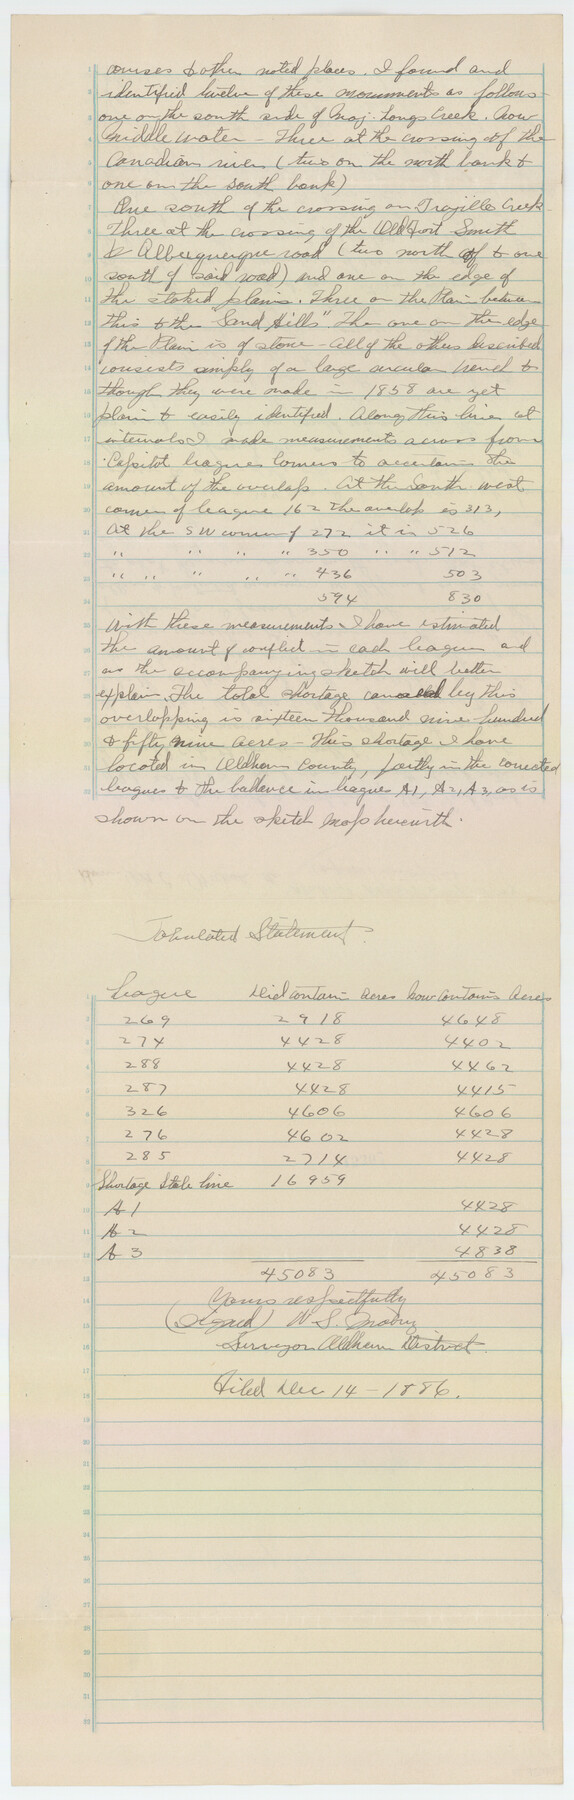 courses & other noted places. I found and
identified twelve of these monuments as follows
one on the south side of Maj. Longs Creek. Now
Middle Water - Three at the crossing of the
Canadian river (two on the north bank &
one on the south bank)
One south of the crossing on Trujillo Creek
Three at the crossing of the Old Fort Smith
& Alberquerque road (two north of & one
south of said road) and one on the edge of
the staked plains. Three on the Plain between
this & the "Sand Hills". The one on the edge
of the Plain is of stone - all of the others described
consists simply of a large circular trench &
though they were made in 1858 are yet
plain & easily identified. Along this line at
intervals I made measurements across from
Capitol leagues corners to ascertain the
amount of the overlap. At the South west
corner of league 162 the overlap is 313,
At the SW corner of 272 it is 526
" " " " " 350 " " " 512
" " " " " " 436 503
594 830
With these measurements I have estimated
the amount of conflict in each league and
as the accompanying sketch will better
explain. The total shortage caused by this
overlapping is sixteen thousand nine hundred
& fifty nine acres - This shortage I have
located in Oldham County, partly in the corrected
leagues & the ballance in leagues A1, A2, A3, as is
shown on the sketch map herewith.
Tabulated Statement.
League Did contain acres Now contains acres
269 2918 4648
274 4428 4402
288 4428 4462
287 4428 4415
326 4606 4606
276 4602 4428
285 2714 4428
Shortage State line 16959
A 1 4428
A 2 4428
A 3 4838
45083 45083
Yours respectfully
(Signed) W. S. Mabry
Surveyor Oldham District.
Filed Dec 14 - 1886.